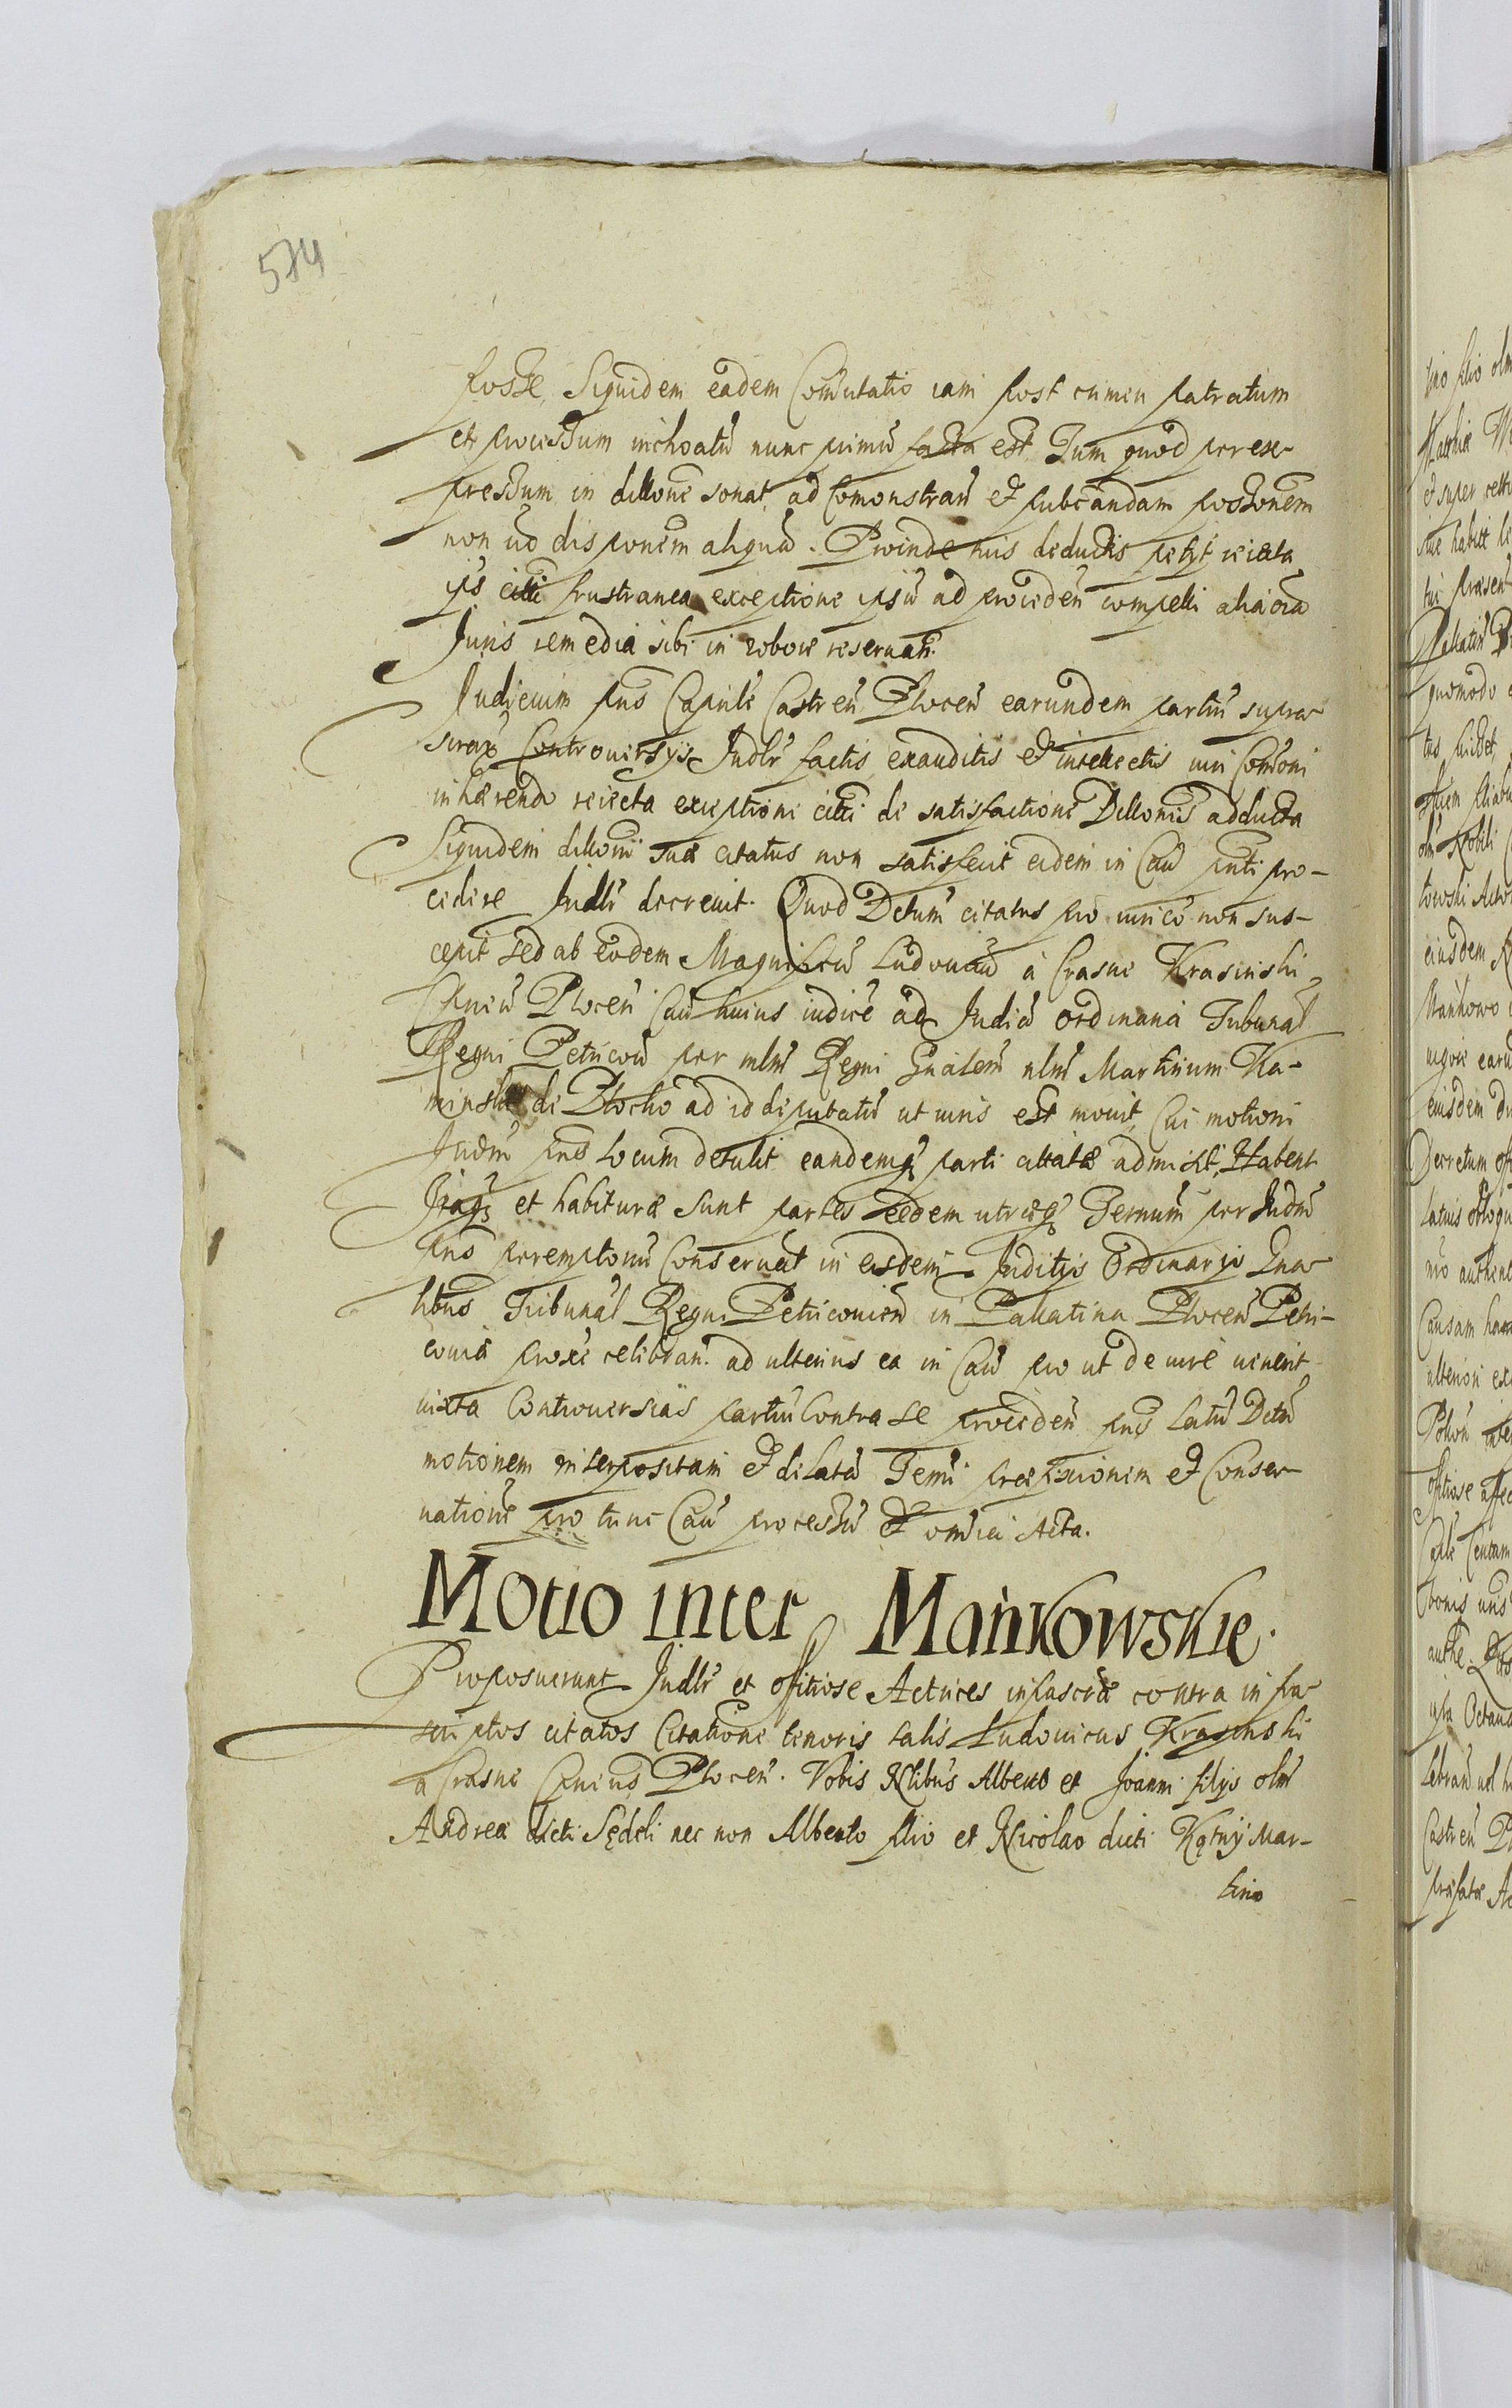 574
posse, Siquidem eadem Comutatio iam post crimen patratum
et processum inchoatū nunc primū facta est Tum quod per ex-
pressum in dillone sonat, ad Comonstran̄ et publicandam possonem
non vō disponem aliquā. Proinde his deductis petyt reiecta
ips citti frustranea exceptione ipsū ad proceden̄ compelli alia ōia
Juris remedia sibi in robore reseruan̄.
Judicium pn̄s Capnle Castren̄ Plocen̄ earundem partiū supra
scrap Controuersys Judlr factis exauditis et intellectis iuri Comoni
inhærendo reiecta exceptione citti de satisfactione Dillonis adducta
Siquidem dilloni suæ citatus non satisfecit eidem in Cau pnti pro-
cedere Judlr decreuit. Quod Detum citatus pro iurico non sus-
cepit sed ab eodem Magnificū Ludouicū à Crasne Krasinski
Capneū Plocen̄ Cau huius iudicē ad Judiā ordinaria Tribunal
Regni Petricou per mlm Regni Gnalem nlm Martinum Ka-
minski de Plocko ad id deputatū ut iuris est mouit, Cui motioni
Judm pns locum detulit eandemq parti cittatæ admisit, Habent
Itaq et habituræ sunt partes eedem utræq Termum per Judm
pns peremptoriū Conseruat in eisdem Juditys Ordinarys Gna-
libus Tribunal Regni Petricouien̄ in Pallatinu Plocen̄ Petri-
couiæ proxe celebran. ad ulterius ea in Cau pro ut de iure uenerit
iuxta Controuersias partiū Contra se proceden̄ pns Latū Detū
motionem interpositam et dilatā Termi præfixionem et Conser-
uationē pro tunc Cau processū et omnia Acta.
Motio inter Mańkowskie.
Proposuerunt Judlr et offitiose Actrices infascræ contra infra
scriptos citatos Citatione tenoris talis Ludouicus Krasinski
a Crasne Capneus Plocen̄. Vobis Nlibus Alberto et Joanni filys olm
Andreæ dicti Sędeli nec non Alberto filio et Nicolao dicti Kątnÿ Mar-
tino